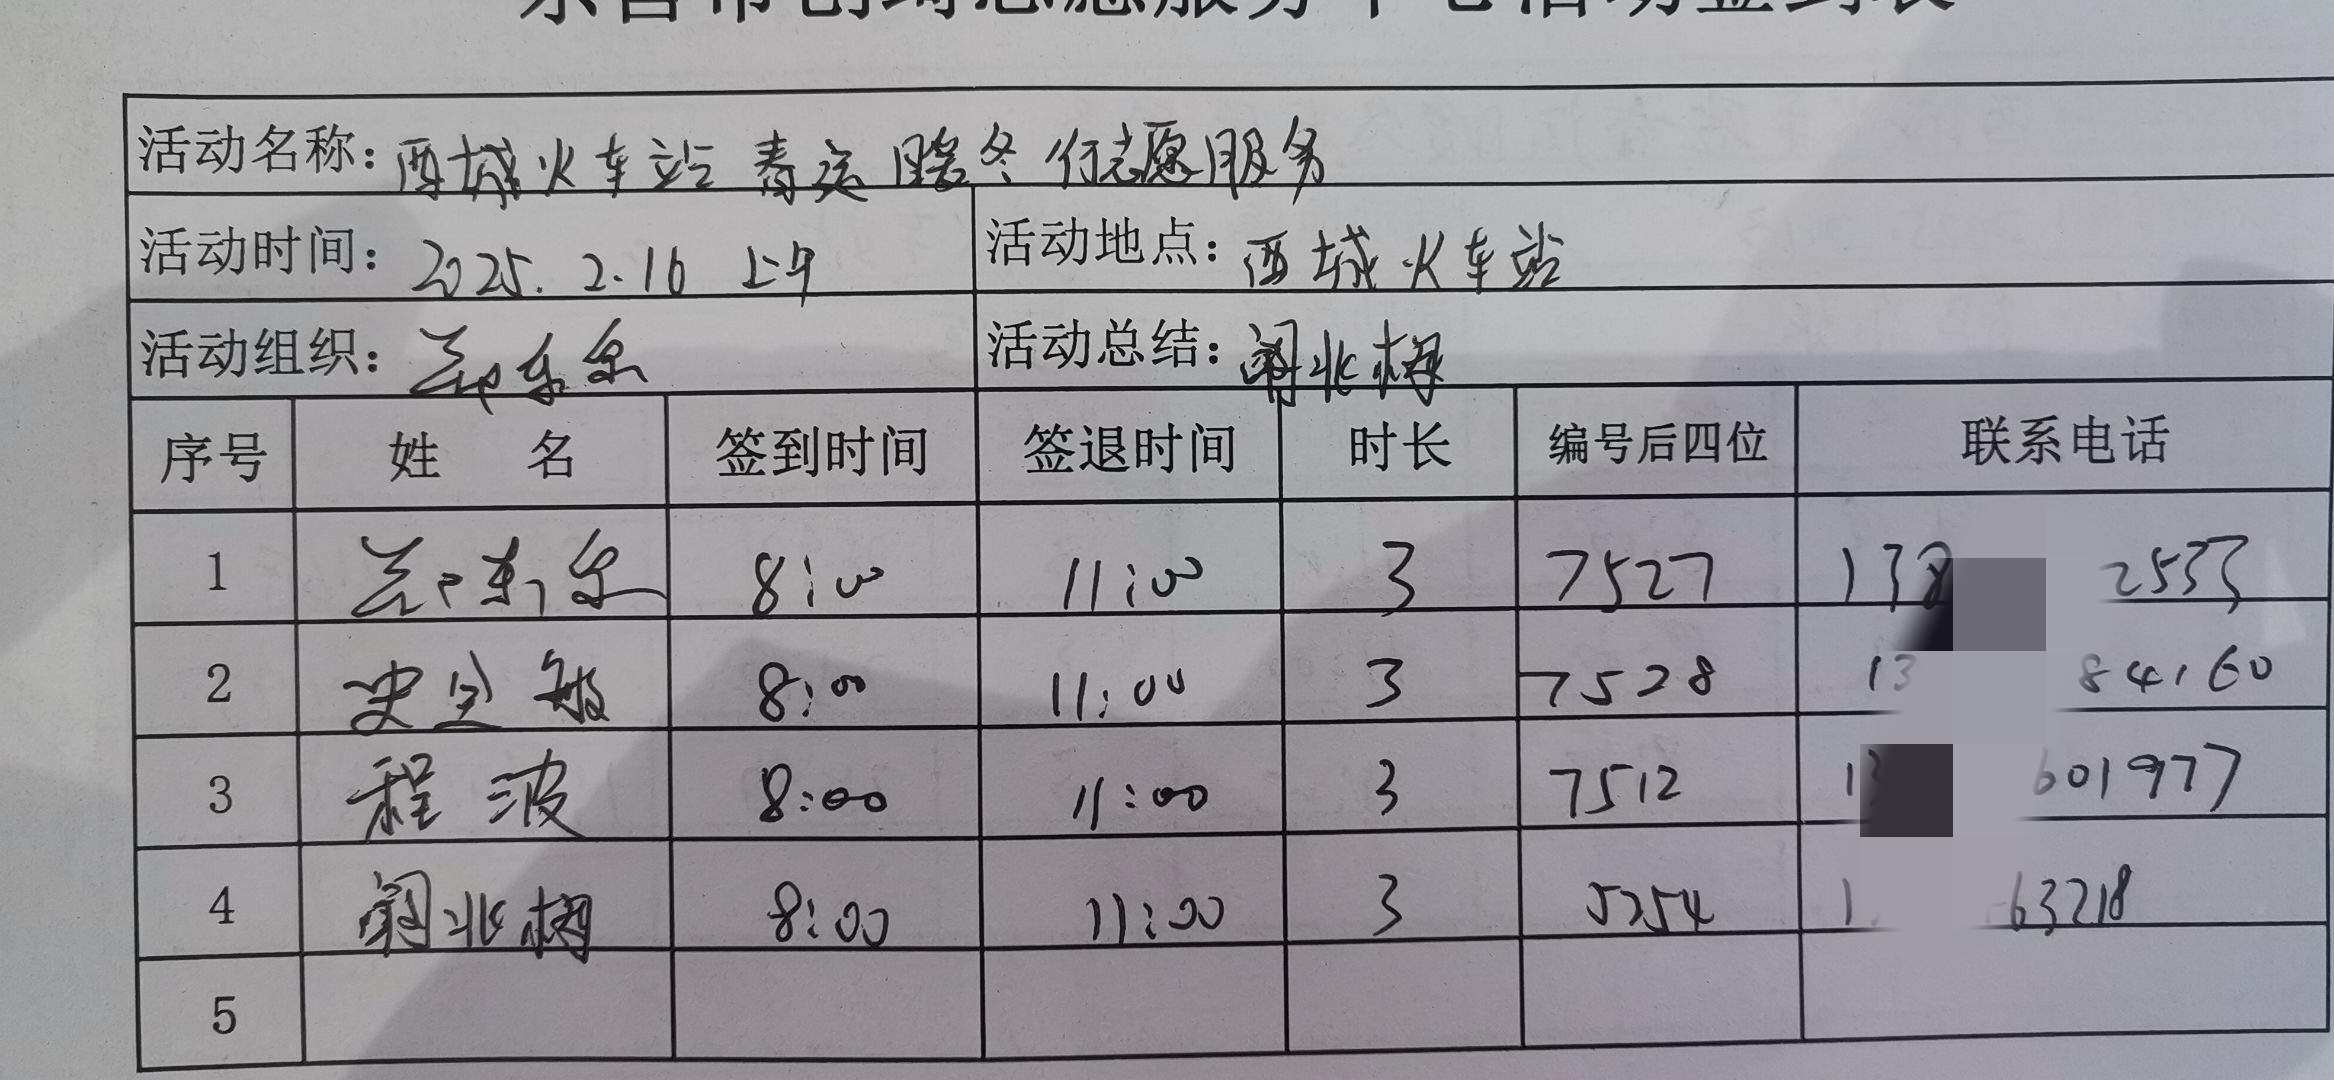 活动名称：西城火车站 春运暖冬行志愿服务
活动时间：2025.2.16 上午 活动地点：西城火车站
活动组织： 活动总结：
序号 姓 名 签到时间 签退时间 时长 编号后四位 联系电话
1 8:00 11:00 3 7527 138 2533
2 史 敏 8:00 11:00 3 7528 13 84160
3 程波 8:00 11:00 3 7512 13 601977
4 8:00 11:00 3 5254 1 63218
5